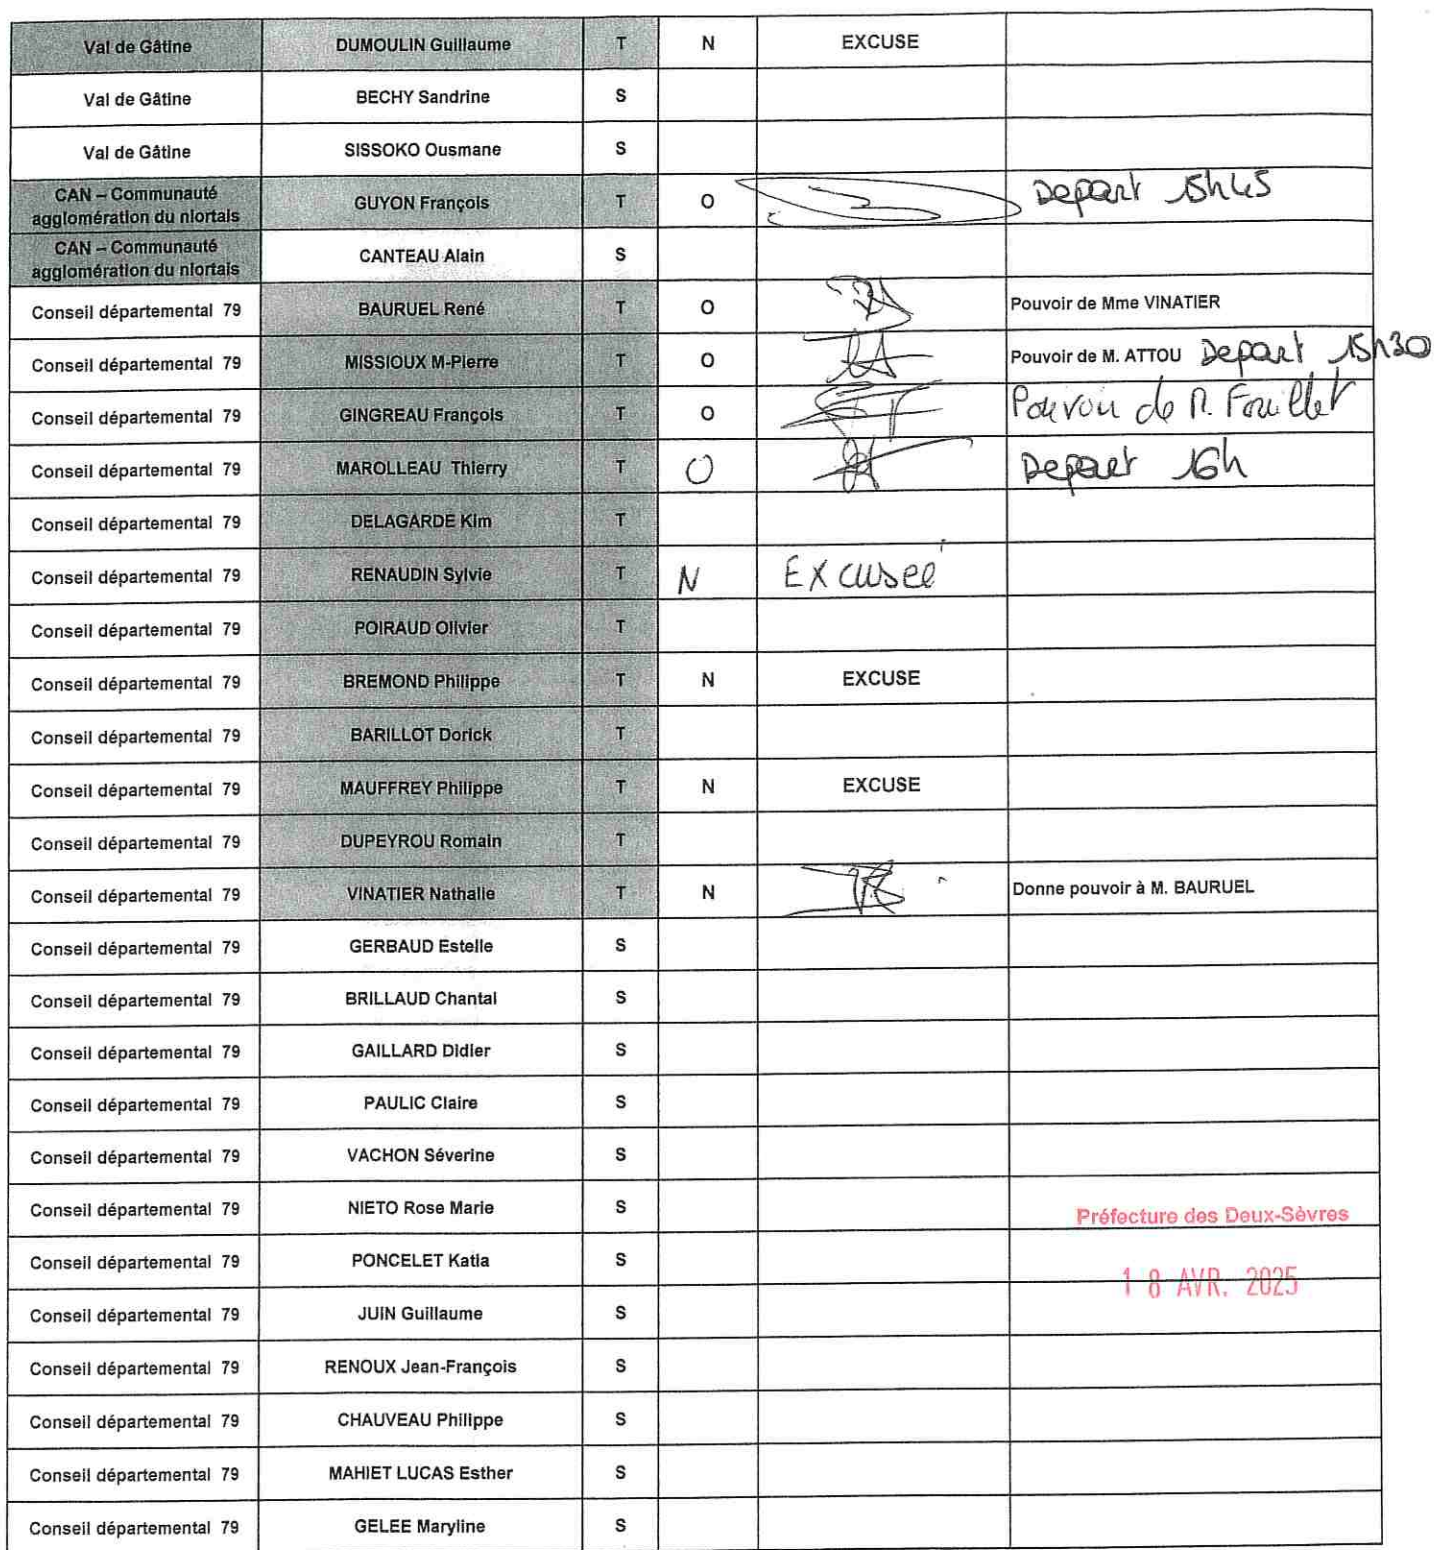 Val de Gâtine DUMOULIN Guillaume T N EXCUSE
Val de Gâtine BECHY Sandrine S
Val de Gâtine SISSOKO Ousmane S
CAN – Communauté
agglomération du niortais GUYON François T O Depart 15h45
CAN – Communauté
agglomération du niortais CANTEAU Alain S
Conseil départemental 79 BAURUEL René T O Pouvoir de Mme VINATIER
Conseil départemental 79 MISSIOUX M-Pierre T O Pouvoir de M. ATTOU Depart 15h30
Conseil départemental 79 GINGREAU François T O Pouvoir de M. Fouillet
Conseil départemental 79 MAROLLEAU Thierry T O Depart 16h
Conseil départemental 79 DELAGARDE Kim T
Conseil départemental 79 RENAUDIN Sylvie T N Excusée
Conseil départemental 79 POIRAUD Olivier T
Conseil départemental 79 BREMOND Philippe T N EXCUSE
Conseil départemental 79 BARILLOT Dorick T
Conseil départemental 79 MAUFFREY Philippe T N EXCUSE
Conseil départemental 79 DUPEYROU Romain T
Conseil départemental 79 VINATIER Nathalie T N Donne pouvoir à M. BAURUEL
Conseil départemental 79 GERBAUD Estelle S
Conseil départemental 79 BRILLAUD Chantal S
Conseil départemental 79 GAILLARD Didier S
Conseil départemental 79 PAULIC Claire S
Conseil départemental 79 VACHON Séverine S
Conseil départemental 79 NIETO Rose Marie S
Préfecture des Deux-Sèvres
Conseil départemental 79 PONCELET Katia S
18 AVR. 2025
Conseil départemental 79 JUIN Guillaume S
Conseil départemental 79 RENOUX Jean-François S
Conseil départemental 79 CHAUVEAU Philippe S
Conseil départemental 79 MAHIET LUCAS Esther S
Conseil départemental 79 GELEE Maryline S